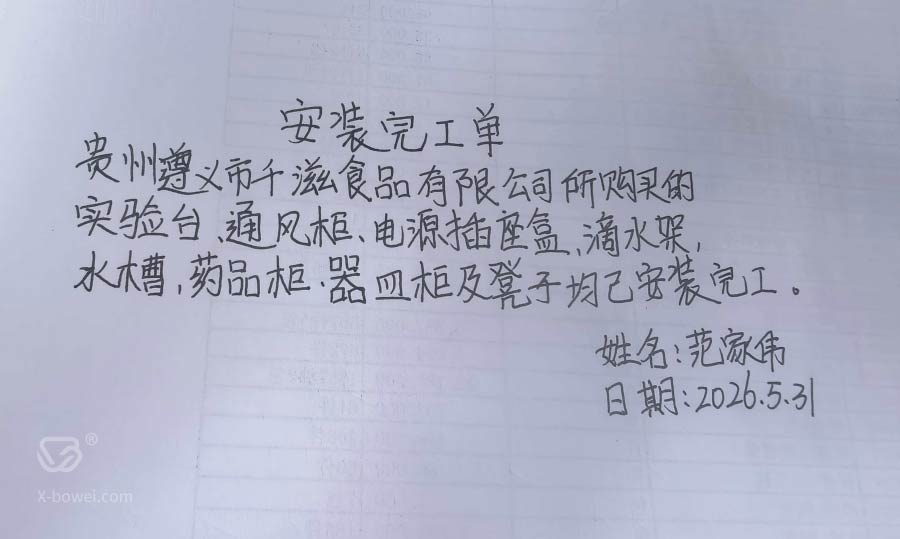 安装完工单
贵州遵义市千滋食品有限公司所购买的
实验台、通风柜、电源插座盒、滴水架,
水槽,药品柜.器皿柜及凳子均已安装完工。
姓名:范家伟
日期:2026.5.31
®
X-bowei.com